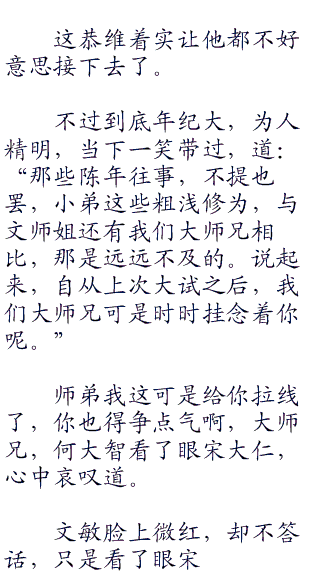 这恭维着实让他都不好
意思接下去了。
不过到底年纪大，为人
精明，当下一笑带过，道：
“那些陈年往事，不提也
罢，小弟这些粗浅修为，与
文师姐还有我们大师兄相
比，那是远远不及的。说起
来，自从上次大试之后，我
们大师兄可是时时挂念着你
呢。”
师弟我这可是给你拉线
了，你也得争点气啊，大师
兄，何大智看了眼宋大仁，
心中哀叹道。
文敏脸上微红，却不答
话，只是看了眼宋